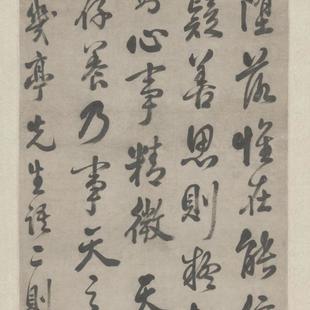 墮落惟在能
疑善思則
心事精微天
存養乃事天之
幾亭先生語二則